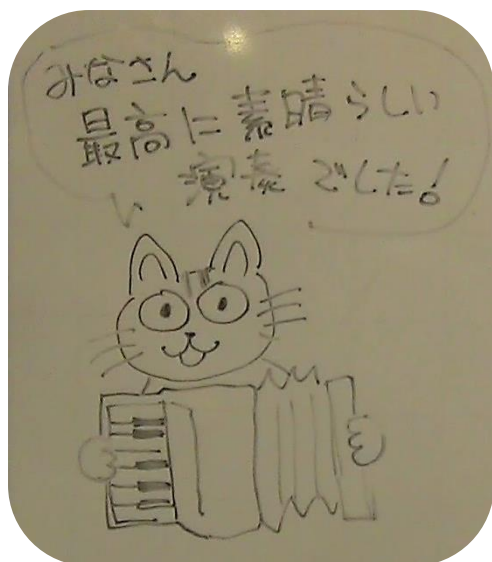 みなさん
最高に素晴らしい
演奏でした!